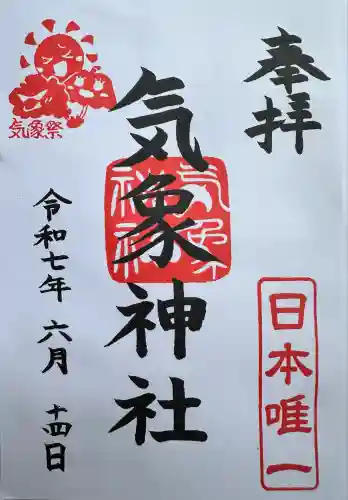 奉拝
日本唯一
気象神社
気象神社
気象祭
令和七年 六月 十四日